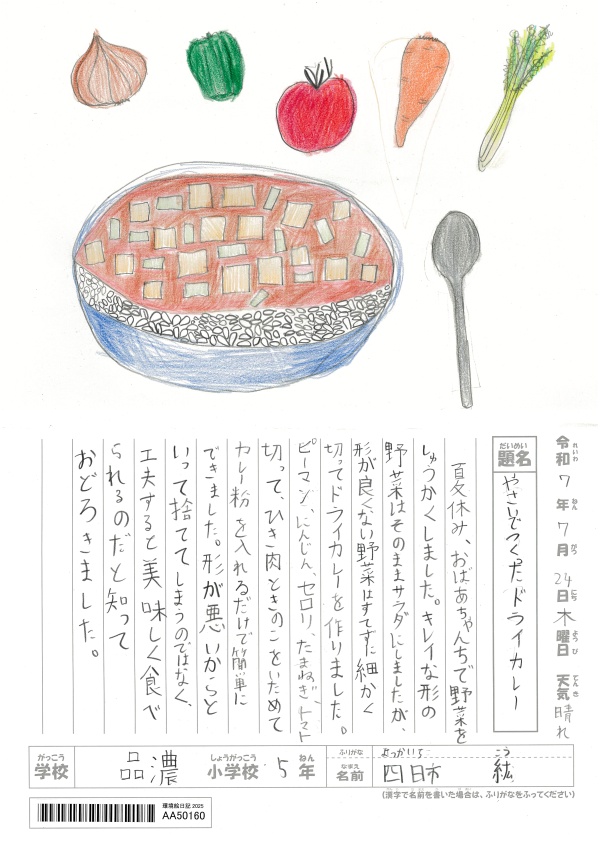 令和7年7月24日木曜日 天気晴れ
れいわ ねん がつ にち ようび てんき
題名 やさいでつくったドライカレー
だいめい
夏休み、おばあちゃんちで野菜を
しゅうかくしました。キレイな形の
野菜はそのままサラダにしましたが、
形が良くない野菜はすてずに細かく
切ってドライカレーを作りました。
ピーマン、にんじん、セロリ、たまねぎ、トマト
切って、ひき肉ときのこをいためて
カレー粉を入れるだけで簡単に
できました。形が悪いからと
いって捨ててしまうのではなく、
工夫すると美味しく食べ
られるのだと知って
おどろきました。
がっこう しょうがっこう ねん ふりがな よっかいち こう
学校 品濃 小学校 5年 なまえ 名前 四日市 紘
(漢字で名前を書いた場合は、ふりがなをふってください)
環境絵日記 2025
AA50160